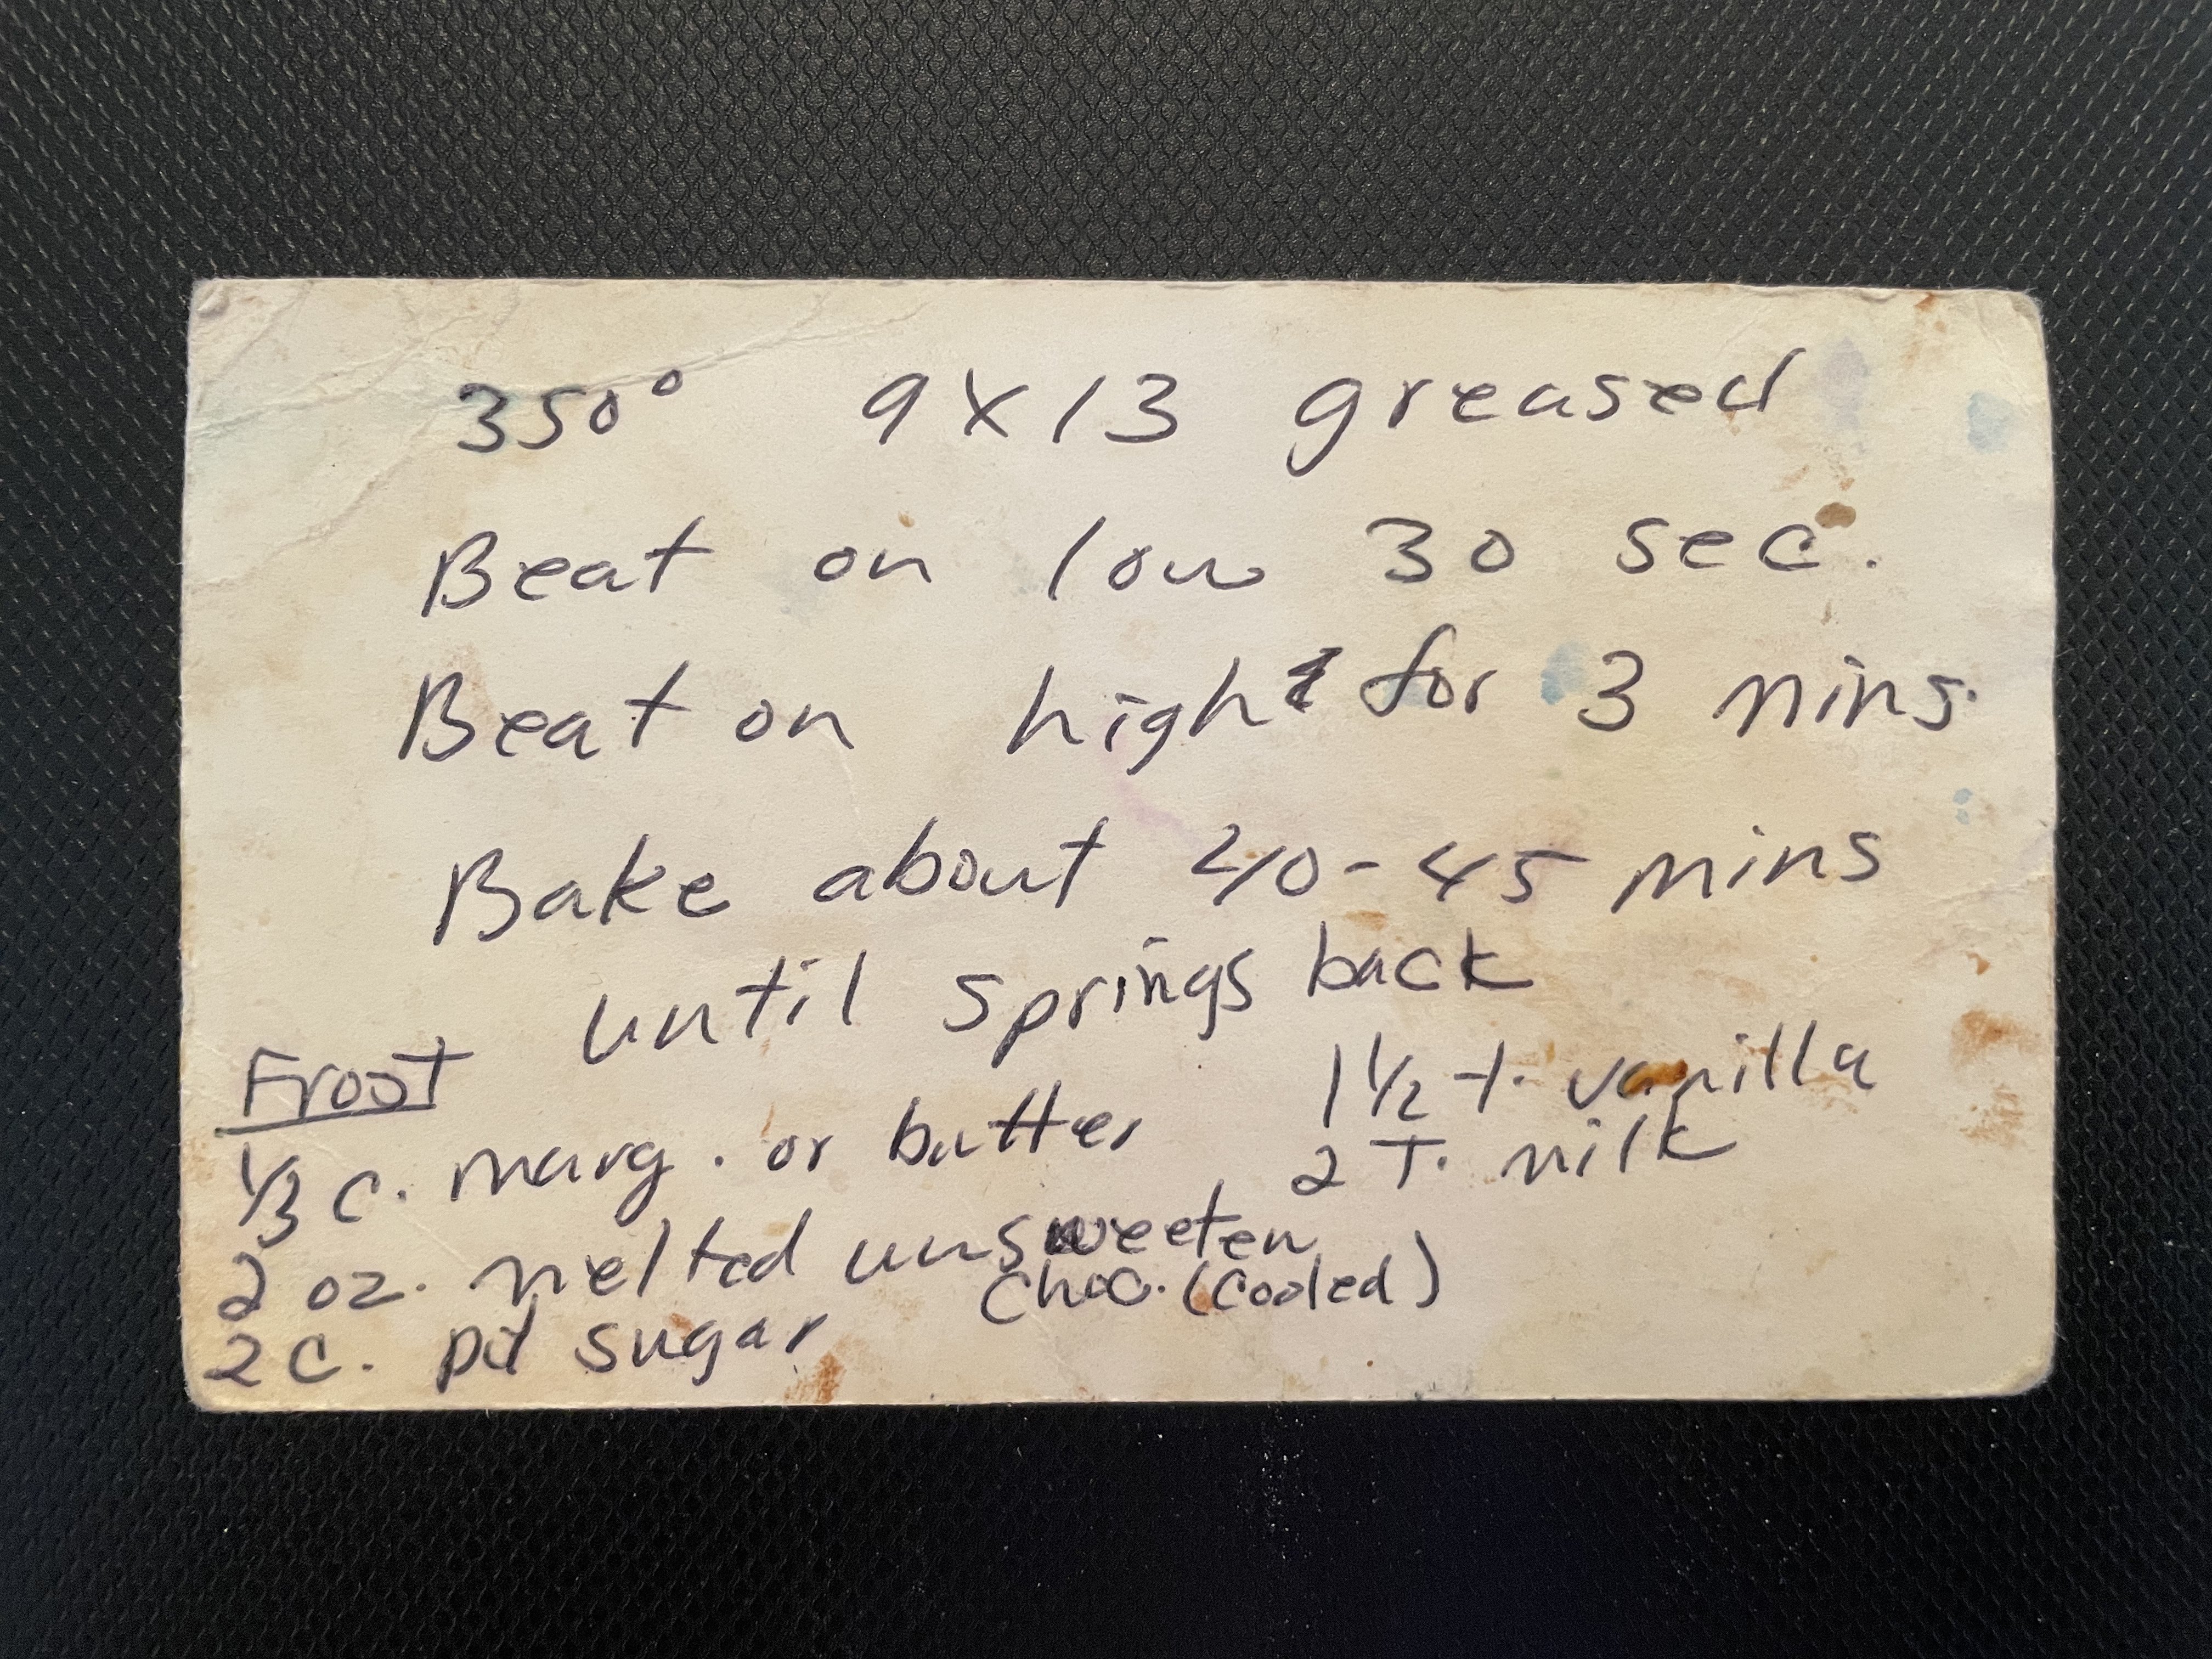 350° 9 X 13 greased
Beat on low 30 sec.
Beat on high for 3 mins.
Bake about 40-45 mins
until springs back
Frost
1/3 c. marg. or butter
2 oz. melted unsweeten
choc. (cooled)
2 c. pd sugar
1 1/2 t. vanilla
2 T. milk